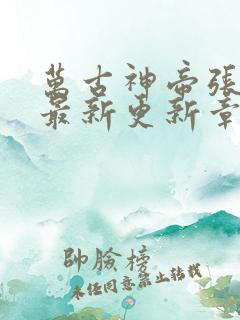 萬古神帝張
最新更新章
帥臉榜
未经同意禁止转载